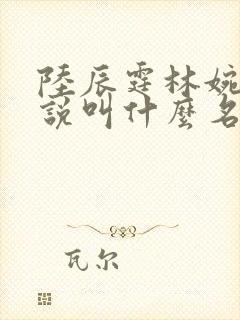 陸辰霆林婉
說叫什麼名
瓦尔